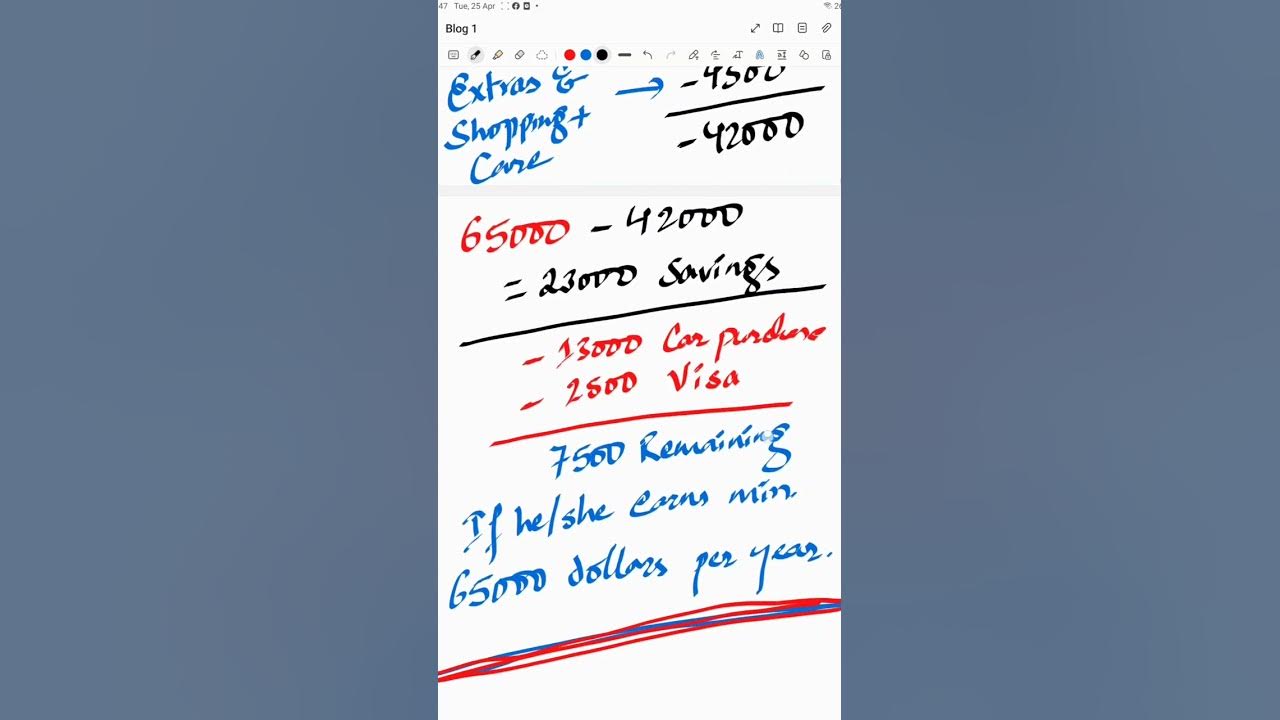 47 Tue, 25 Apr
26
Blog 1
Extras & → -4500
Shopping+ -42000
Care
65000 - 42000
= 23000 Savings
- 13000 Car purchase
- 2500 Visa
7500 Remaining
If he/she earns min.
65000 dollars per year.